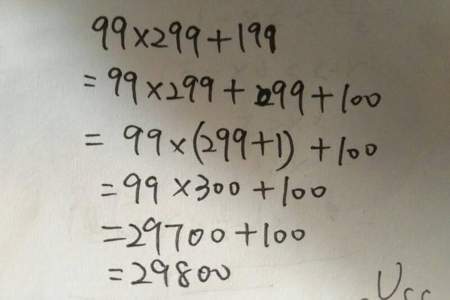 99×299+199
=99×299+99+100
=99×(299+1)+100
=99×300+100
=29700+100
=29800